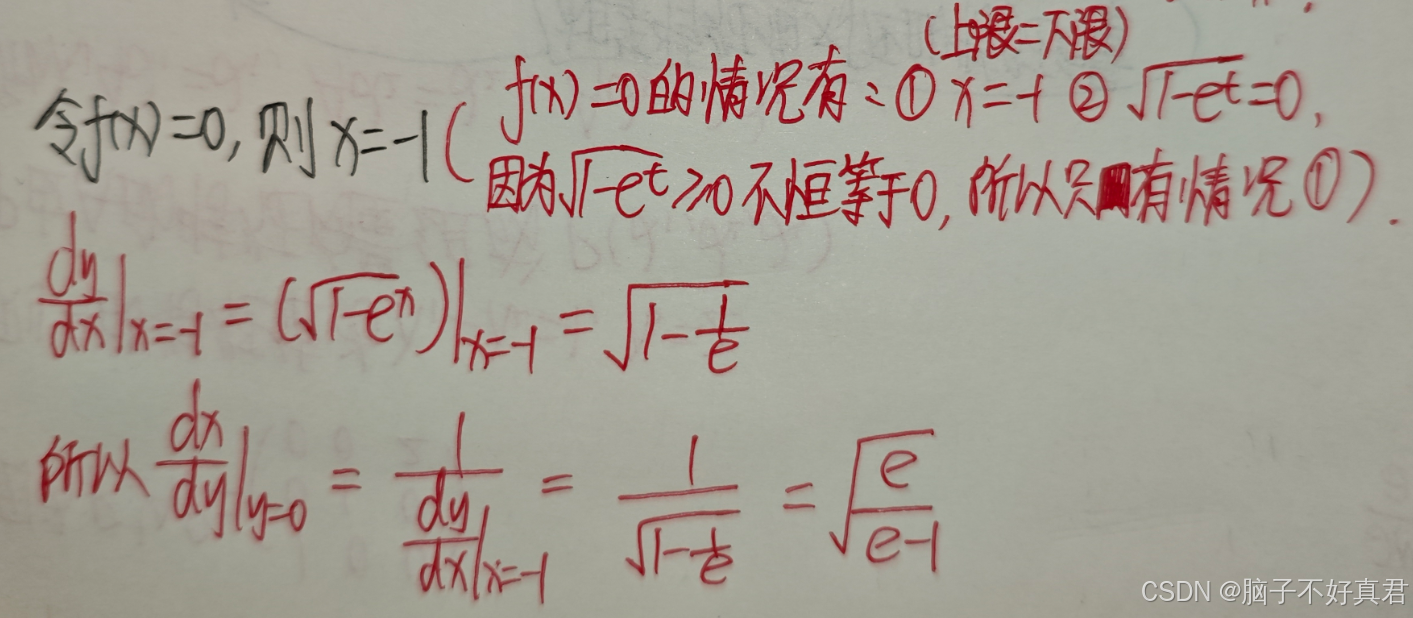 (上限=下限)
令f(x)=0, 则 x=-1 ( f(x)=0的情况有: ① x=-1 ② √(1-e^t)=0,
因为√(1-e^t)≥0 不恒等于0, 所以只有情况①).
dy/dx|x=-1 = (√(1-e^x))|x=-1 = √(1-1/e)
所以 dx/dy|y=0 = 1/(dy/dx|x=-1) = 1/√(1-1/e) = √(e/(e-1))
CSDN @脑子不好真君